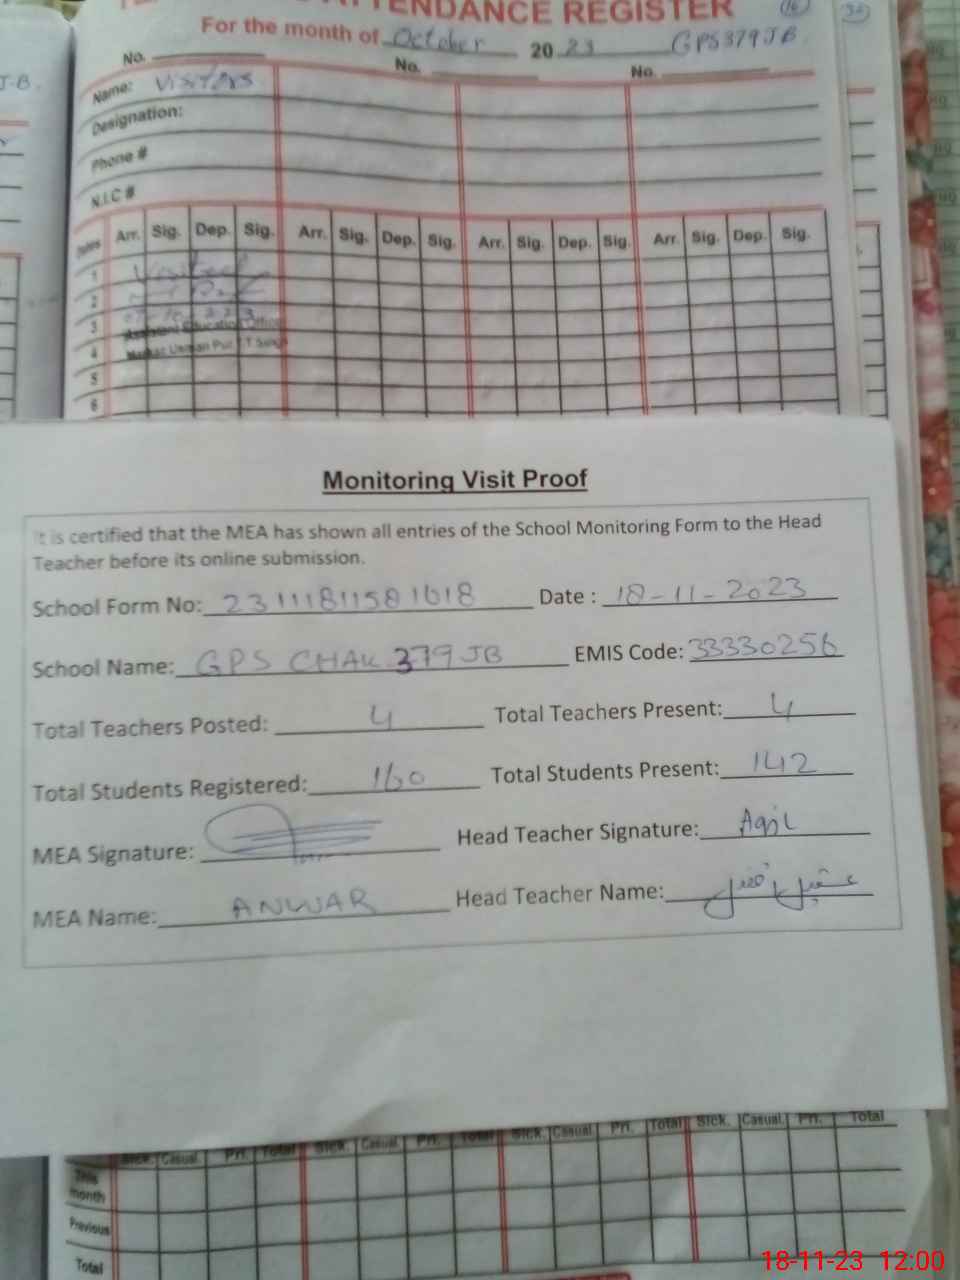 ATTENDANCE REGISTER
For the month of October 20 23 GPS 379 JB
No. No. No.
Name: Visitors
Designation:
Phone #
N.I.C #
Dates Arr. Sig. Dep. Sig. Arr. Sig. Dep. Sig. Arr. Sig. Dep. Sig. Arr. Sig. Dep. Sig.
1 Visited
2
3
Assistant Education Officer
4
5
6
Monitoring Visit Proof
It is certified that the MEA has shown all entries of the School Monitoring Form to the Head
Teacher before its online submission.
School Form No: 23111811581618 Date : 18-11-2023
School Name: GPS CHAK 379 JB EMIS Code: 33330256
Total Teachers Posted: 4 Total Teachers Present: 4
Total Students Registered: 160 Total Students Present: 142
MEA Signature: Head Teacher Signature: Aqil
MEA Name: ANWAR Head Teacher Name:
Sick. Casual. Pri. Total Sick. Casual. Pri. Total Sick. Casual. Pri. Total Sick. Casual. Pri. Total
This
month
Previous
Total
18-11-23 12:00